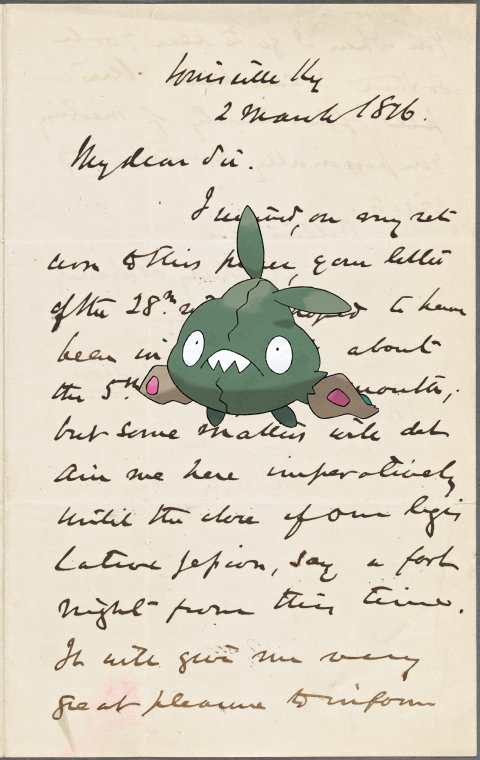 Louisville Ky
2 March 1876.
My dear Sir.
I received, on my ret
urn to this place, your letter
of the 28th to have
been in about
the 5th month,
but some matters will det
ain me here imperatively
until the close of our legis
lative session, say a fort
night from this time.
It will give me very
great pleasure to inform